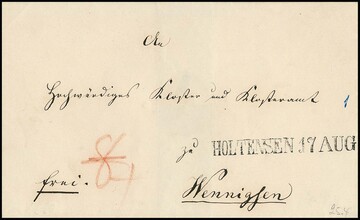 An
Hochwürdiges Kloster und Klosteramt
zu HOLTENSEN 17 AUG
frei.
Wennigsen